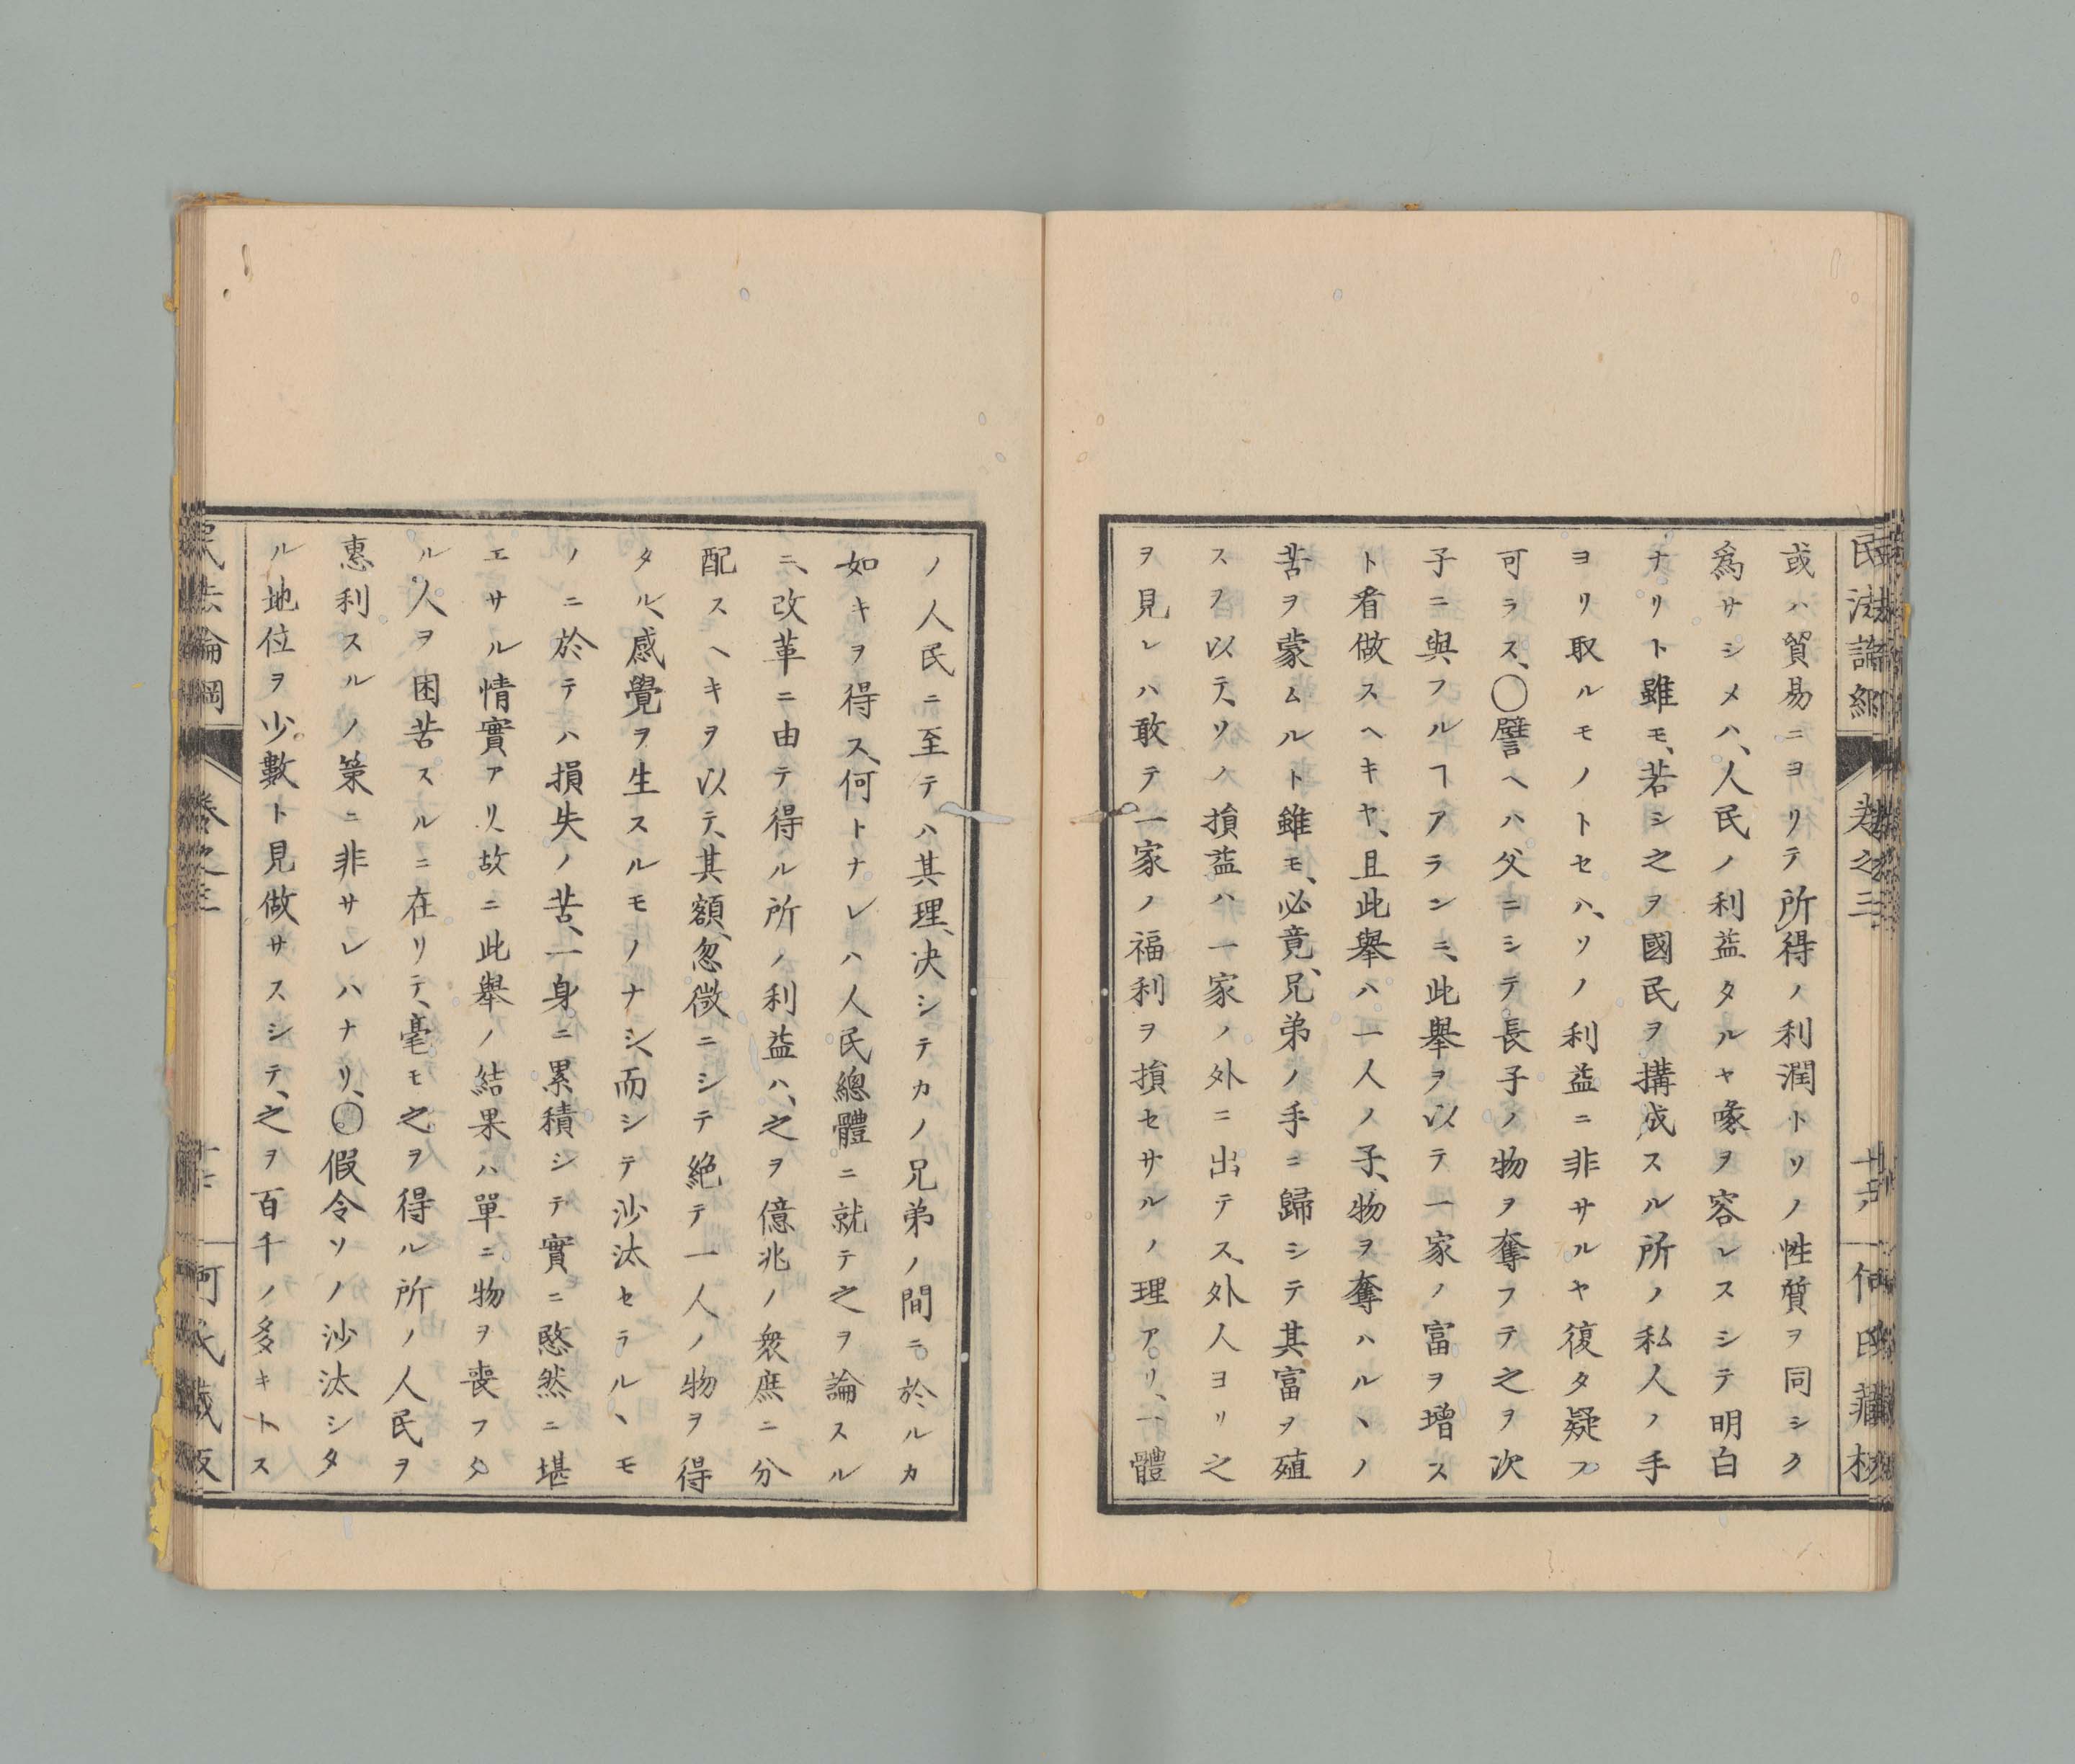 民法論綱
卷之三
十六
何氏藏板
或ハ貿易ニヨリテ所得ノ利潤トソノ性質ヲ同シク
爲サシメハ、人民ノ利益タルヤ喙ヲ容レスシテ明白
ナリト雖モ、若シ之ヲ國民ヲ搆成スル所ノ私人ノ手
ヨリ取ルモノトセハ、ソノ利益ニ非サルヤ復タ疑フ
可ラス、〇譬ヘハ父ニシテ長子ノ物ヲ奪フテ之ヲ次
子ニ與フルヿアランニ、此舉ヲ以テ一家ノ富ヲ增ス
ト看做スヘキヤ、且此舉ハ一人ノ子、物ヲ奪ハルヽノ
苦ヲ蒙ムルト雖モ、必竟、兄弟ノ手ニ歸シテ其富ヲ殖
スヲ以テ、ソノ損益ハ一家ノ外ニ出テス、外人ヨリ之
ヲ見レハ敢テ一家ノ福利ヲ損セサルノ理アリ、一體
ノ人民ニ至テハ其理、决シテカノ兄弟ノ間ニ於ルカ
如キヲ得ス、何トナレハ人民總體ニ就テ之ヲ論スル
ニ、改革ニ由テ得ル所ノ利益ハ、之ヲ億兆ノ衆庶ニ分
配スヘキヲ以テ、其額、忽微ニシテ絶テ一人ノ物ヲ得
タル、感覺ヲ生スルモノナシ、而シテ沙汰セラルヽモ
ノニ於テハ損失ノ苦、一身ニ累積シテ實ニ愍然ニ堪
エサル情實アリ、故ニ此舉ノ結果ハ單ニ物ヲ喪フタ
ル人ヲ困苦スルニ在リテ、毫モ之ヲ得ル所ノ人民ヲ
惠利スルノ策ニ非サレハナリ、〇假令ソノ沙汰シタ
ル地位ヲ少數ト見做サスシテ、之ヲ百千ノ多キトス
民法論綱
卷之三
何氏藏板